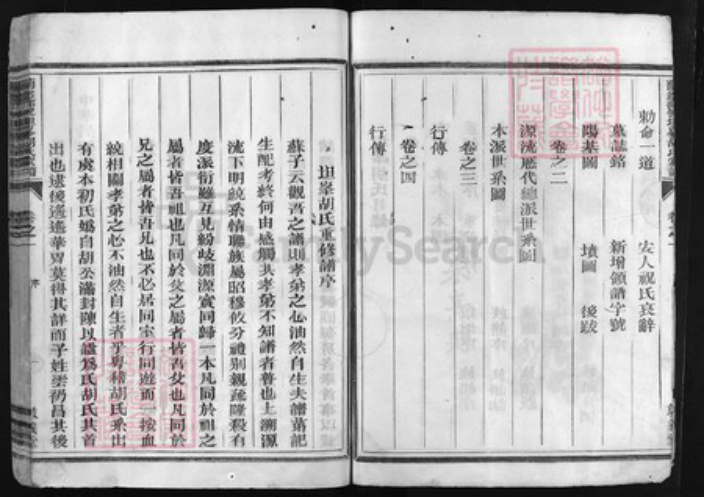 勅命一道　安人祝氏哀辭
墓誌銘　新增領譜字號
陽基圖　墳圖　後跋
卷之二
源流歷代總派世系圖
本派世系圖
卷之三
行傳
卷之四
行傳
坦峯胡氏重修譜序
蘇子云觀吾之譜則孝弟之心油然自生夫譜第記
生配考終何由感觸其孝弟不知譜者普也上溯源
流下明統系情聯族屬昭穆攸分禮別親疎隆殺有
度派衍雖互見紛歧淵源實同歸一本凡同於祖之
屬者皆吾祖也凡同於父之屬者皆吾父也凡同於
兄之屬者皆吾兄也不必居同室行同遊而一按血
統相關孝弟之心不油然自生者乎粤稽胡氏系出
有虞本初氏媯自胡公滿封陳以諡為氏胡氏其首
出也逮後遙遙華胄莫得其詳而子姓雲礽昌其後
卷之一
序
FamilySearch